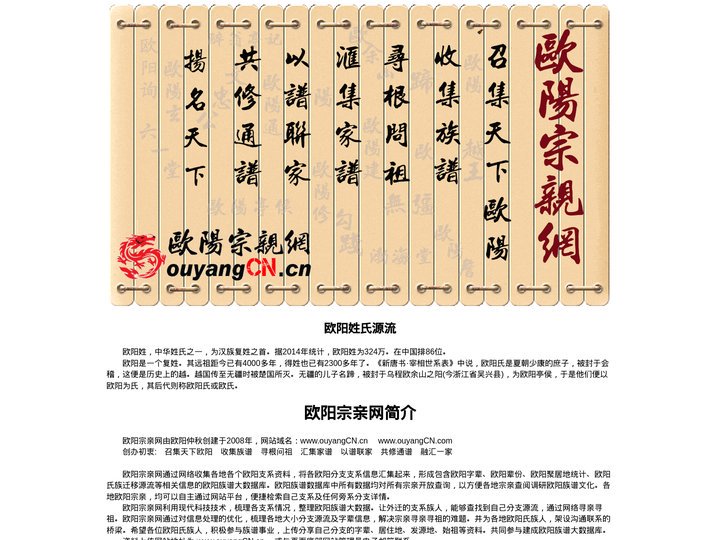 歐陽宗親網
召集天下歐陽
收集族譜
尋根問祖
滙集家譜
以譜聯家
共修通譜
揚名天下
歐陽宗親網
ouyangCN.cn
欧阳姓氏源流
欧阳姓，中华姓氏之一，为汉族复姓之首。据2014年统计，欧阳姓为324万。在中国排86位。
欧阳是一个复姓。其远祖距今已有4000多年，得姓也已有2300多年了。《新唐书·宰相世系表》中说，欧阳氏是夏朝少康的庶子，被封于会
稽，这便是历史上的越。越国传至无疆时被楚国所灭。无疆的儿子名蹄，被封于乌程欧余山之阳(今浙江省吴兴县)，为欧阳亭侯，于是他们便以
欧阳为氏，其后代则称欧阳氏或欧氏。
欧阳宗亲网简介
欧阳宗亲网由欧阳仲秋创建于2008年，网站域名：www.ouyangCN.cn www.ouyangCN.com
创办初衷: 召集天下欧阳 收集族谱 寻根问祖 汇集家谱 以谱联家 共修通谱 融汇一家
欧阳宗亲网通过网络收集各地各个欧阳支系资料，将各欧阳分支支系信息汇集起来，形成包含欧阳字辈、欧阳辈份、欧阳聚居地统计、欧阳
氏族迁移源流等相关信息的欧阳族谱大数据库。欧阳族谱数据库中所有数据均对所有宗亲开放查询，以方便各地宗亲查阅调研欧阳族谱文化。各
地欧阳宗亲，均可以自主通过网站平台，便捷检索自己支系及任何旁系分支详情。
欧阳宗亲网利用现代科技技术，梳理各支系情况，整理欧阳族谱大数据。让外迁的支系族人，能够查找到自己分支源流，通过网络寻亲寻
祖。欧阳宗亲网通过对信息处理的优化，梳理各地大小分支源流及字辈信息，解决宗亲寻亲寻祖的难题。并为各地欧阳氏族人，架设沟通联系的
桥梁。希望各位欧阳氏族人，积极参与族谱事业，上传分享自己分支的字辈、居住地、发源地、始祖等资料。共同参与建成欧阳族谱大数据库。